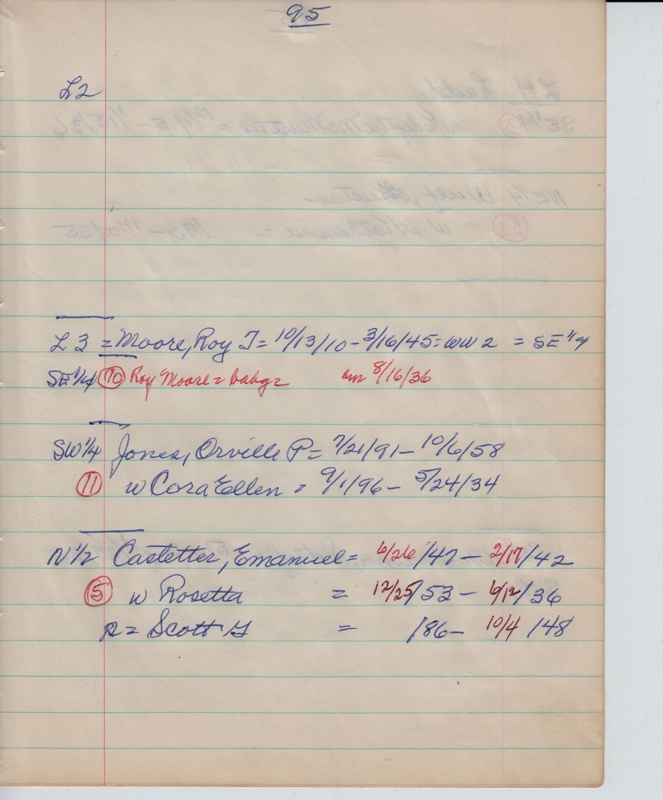 95
L2
L3 = Moore, Roy J = 10/13/10 - 3/16/45 = WW2 = SE 1/4
SE 1/4 10 Roy Moore = baby = 8/16/36
SW 1/4 Jones, Orville P = 7/21/91 - 10/6/58
11 w Cora Ellen = 9/1/96 - 5/24/34
N 1/2 Castetter, Emanuel = 6/26/47 - 2/17/42
5 w Rosetta = 12/25/53 - 6/12/36
= Scott = /86 - 10/4/48